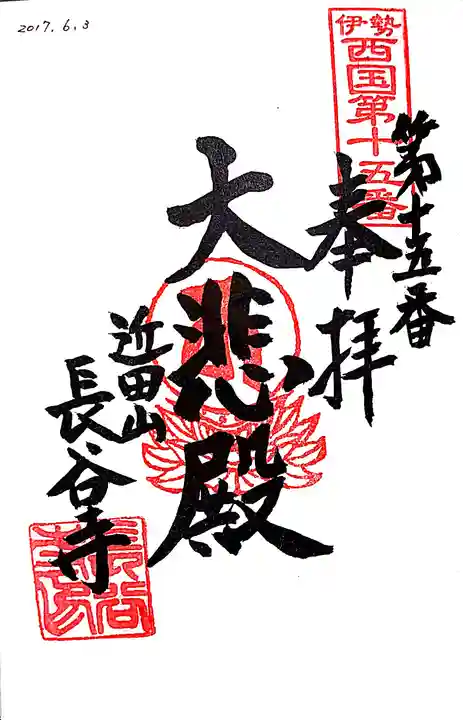 2017.6.3
伊勢
西国第十五番
第十五番
奉拝
大悲殿
近田山
長谷寺